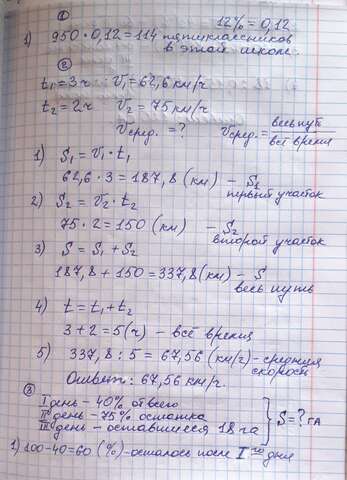 ①
12% = 0,12
1) 950 · 0,12 = 114 пятиклассников
в этой школе.
②
t₁ = 3 ч v₁ = 62,6 км/ч
t₂ = 2 ч v₂ = 75 км/ч
vсред. = ? vсред. = весь путь / всё время
1) S₁ = v₁ · t₁
62,6 · 3 = 187,8 (км) – S₁
первый участок
2) S₂ = v₂ · t₂
75 · 2 = 150 (км) – S₂
второй участок
3) S = S₁ + S₂
187,8 + 150 = 337,8 (км) – S
весь путь
4) t = t₁ + t₂
3 + 2 = 5 (ч) – всё время
5) 337,8 : 5 = 67,56 (км/ч) – средняя
скорость
Ответ: 67,56 км/ч.
③
I день – 40% от всего
II день – 75% остатка
III день – оставшиеся 18 га } S = ? га
1) 100 – 40 = 60 (%) – осталось после I го дня